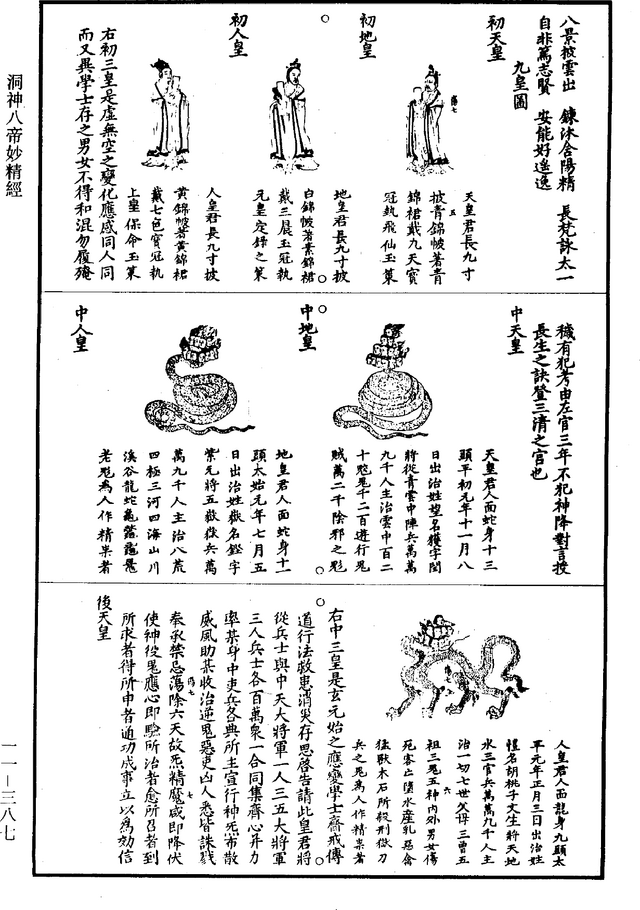 八景披雲出　鍊沐含陽精　長梵詠太一
自非篤志賢　安能好遥逸
九皇圖
初天皇
天皇君長九寸
披青錦帔著青
錦裙戴九天寳
冠執飛仙玉策
初地皇
地皇君長九寸披
白錦帔著素錦裙
戴三晨玉冠執
元皇定錄之策
初人皇
人皇君長九寸披
黄錦帔著黄錦裙
戴七色寳冠執
上皇保命玉策
右初三皇是虛無空之變化應感同人同
而又與學士存之男女不得和混勿履殗
穢有犯考由左官三年不犯神降對言授
長生之訣登三清之官也
中天皇
天皇君人面蛇身十三
頭平初元年十一月八
日出治姓望名獲字閏
將從青雲中陣兵萬萬
九千人主治雲中百二
十䰠鬼千二百遊行鬼
賊萬二千陰邪之䰠
中地皇
地皇君人面蛇身十一
頭太始元年七月五
日出治姓嶽名鏗字
紫元將五嶽嶽兵萬
萬九千人主治八荒
四極三河四海山川
溪谷龍蛇龜鼈黿鼉
老䰠為人作精祟者
中人皇
人皇君人面龍身九頭太
平元年正月三日出治姓
愷名胡桃子文生將天地
水三官兵萬萬九千人主
治一切七世父母三曾五
祖三鬼五神内外男女傷
死客亡墮水産乳惡禽
猛獸木石所殺刑獄刀
兵之鬼為人作精祟者
右中三皇是玄元始之應變學士齋戒傳
道行法救患消災存思啓告請此皇君將
從兵士與中天大將軍一人三五大將軍
三人兵士各百萬衆一合同集齊心并力
率某身中吏兵各典所主宣行神炁布散
威風助某收治逆鬼惡吏凶人悉皆誅戮
奉承禁忌蕩除六天故炁精魔咸即降伏
使神役鬼應心即驗所治者愈所召者到
所求者得所申者通功成事立以為効信
後天皇
洞神八帝妙精經
一一－三八七